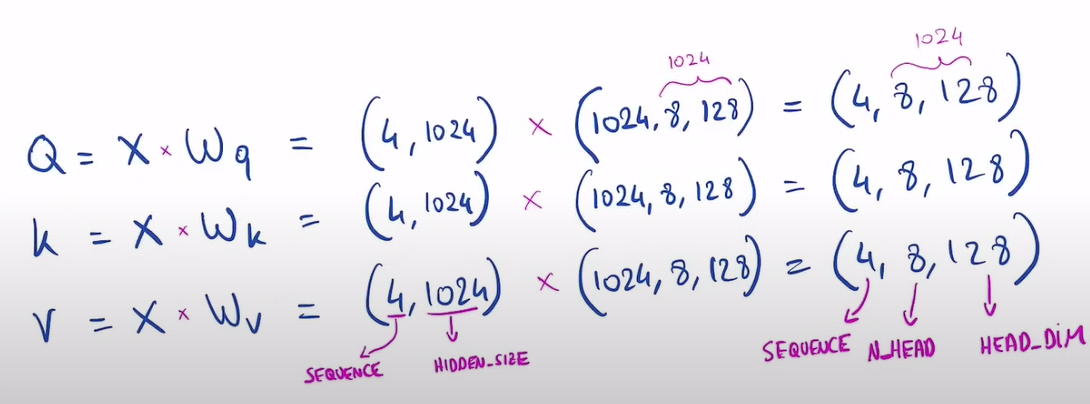 1024
1024
Q = X × Wq = (4, 1024) × (1024, 8, 128) = (4, 8, 128)
k = X × Wk = (4, 1024) × (1024, 8, 128) = (4, 8, 128)
V = X × Wv = (4, 1024) × (1024, 8, 128) = (4, 8, 128)
SEQUENCE HIDDEN_SIZE SEQUENCE N_HEAD HEAD_DIM